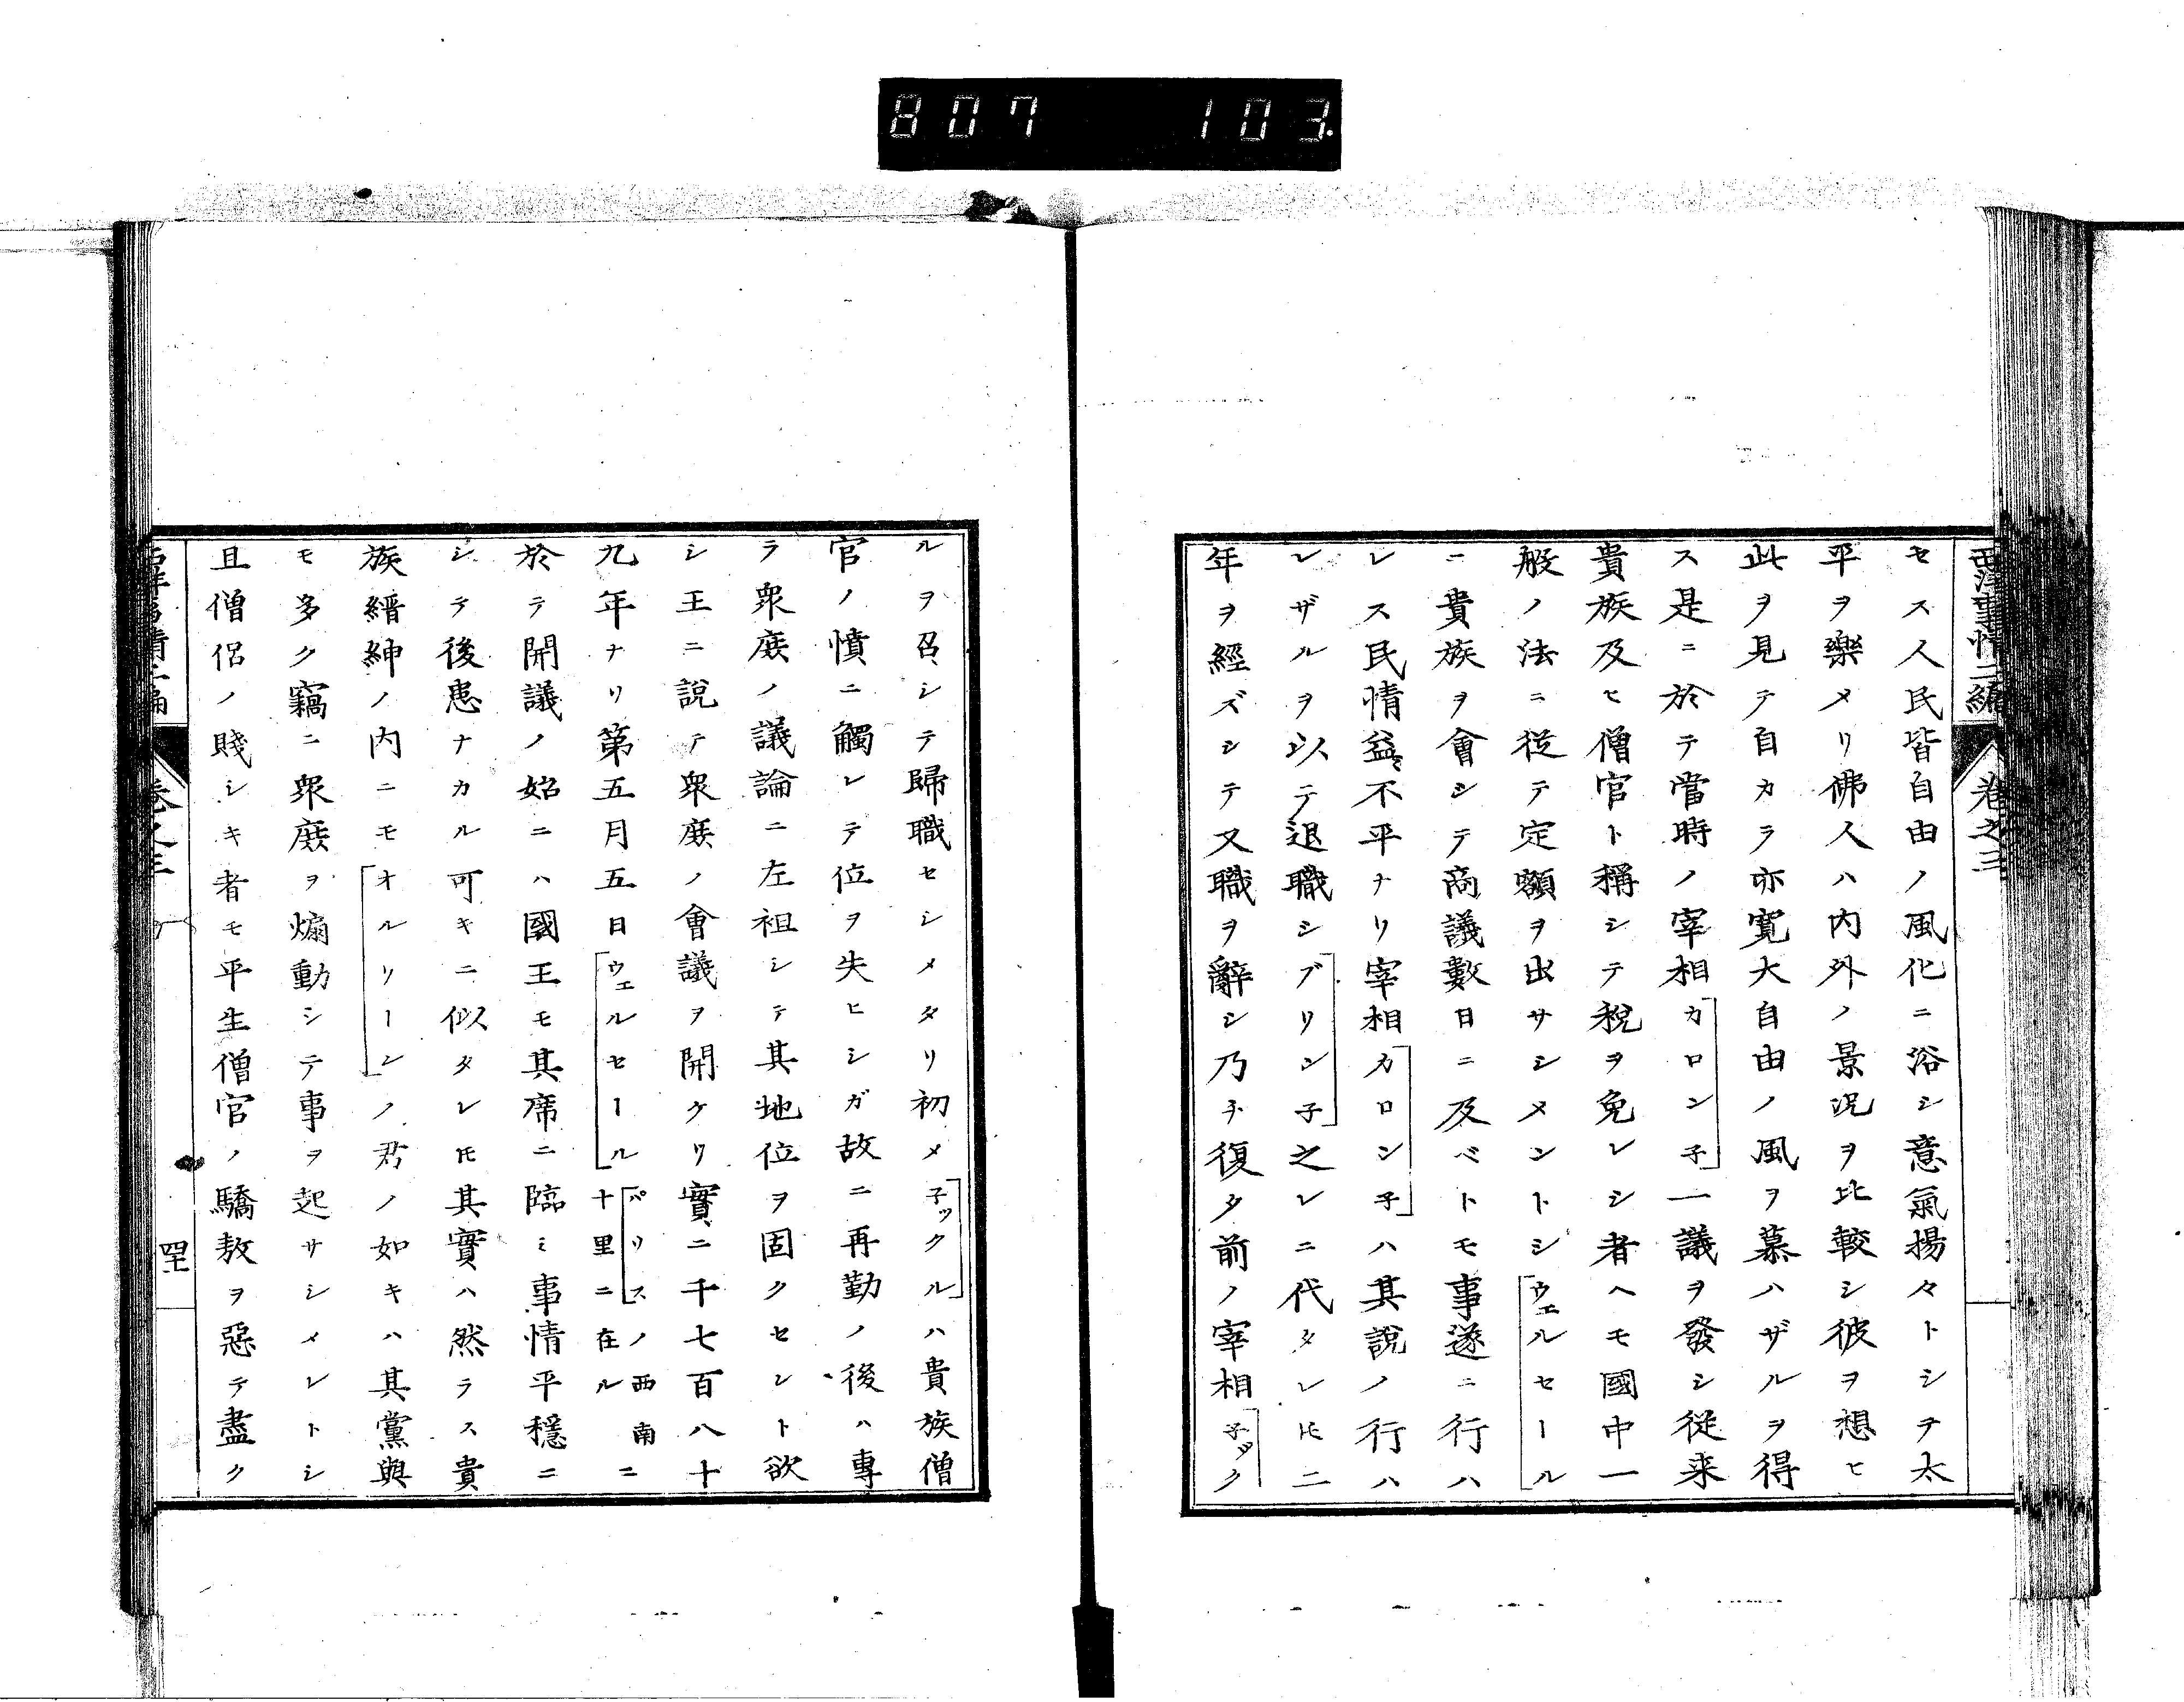 807 103.
西洋事情二編 卷之三
セス人民皆自由ノ風化ニ浴シ意氣揚々トシヲ太
平ヲ樂メリ佛人ハ内外ノ景况ヲ比較シ彼ヲ想ヒ
此ヲ見テ自カラ亦寛大自由ノ風ヲ慕ハザルヲ得
ス是ニ於テ當時ノ宰相カロン子一議ヲ發シ從来
貴族及ヒ僧官ト稱シテ税ヲ免レシ者ヘモ國中一
般ノ法ニ從テ定額ヲ出サシメントシウェルセール
ニ貴族ヲ會シテ商議數日ニ及ベトモ事遂ニ行ハ
レス民情益〻不平ナリ宰相カロン子ハ其說ノ行ハ
レザルヲ以テ退職シブリン子之レニ代タレ𪜈二
年ヲ經ズシテ又職ヲ辭シ乃チ復タ前ノ宰相子ック
ルヲ召シテ歸職セシメタリ初メ子ックルハ貴族僧
官ノ憤ニ觸レテ位ヲ失ヒシガ故ニ再勤ノ後ハ專
ラ衆庶ノ議論ニ左袒シテ其地位ヲ固クセント欲
シ王ニ說テ衆庶ノ會議ヲ開ケリ實ニ千七百八十
九年ナリ第五月五日ウェルセールパリスノ西南ニ十里ニ在ル
於テ開議ノ始ニハ國王モ其席ニ臨ミ事情平穩ニ
シテ後患ナカル可キニ似タレ𪜈其實ハ然ラス貴
族縉紳ノ内ニモオルリーンノ君ノ如キハ其黨與
モ多ク竊ニ衆庶ヲ煽動シテ事ヲ起サシメレトシ
且僧侶ノ賤シキ者モ平生僧官ノ驕敖ヲ惡テ盡ク
西洋事情二編 卷之三 四十